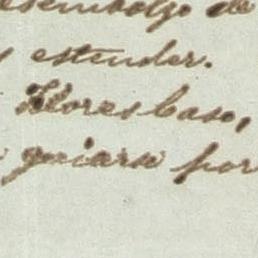 desembolso de
estender.
Flores baso,
guiarse por